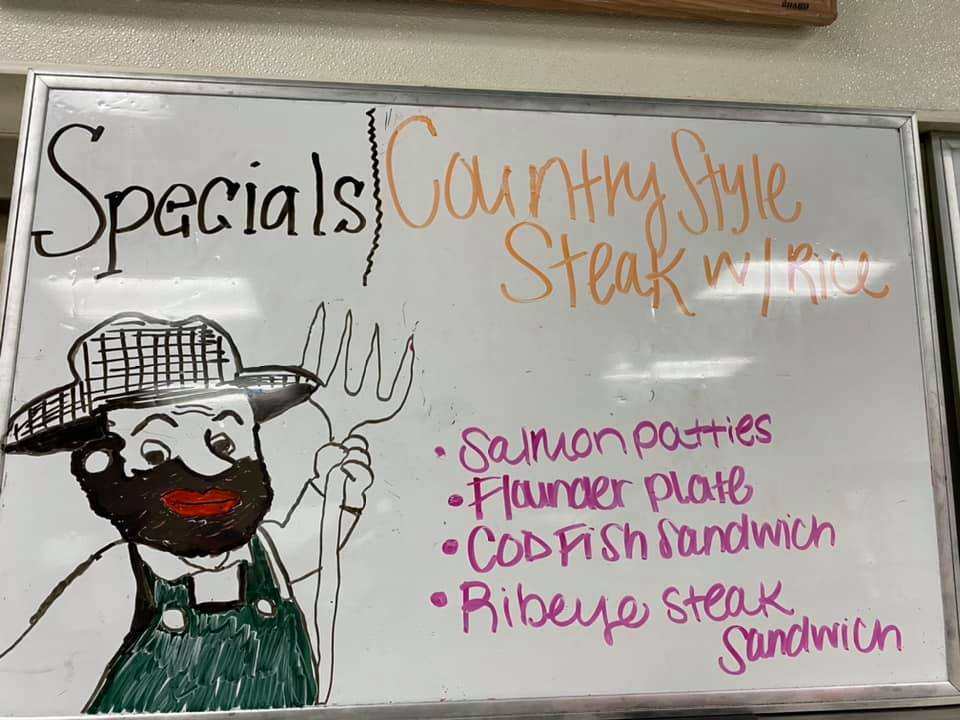 Specials
Country Style
Steak w/ Rice
• Salmon patties
• Flounder plate
• COD Fish Sandwich
• Ribeye steak
Sandwich